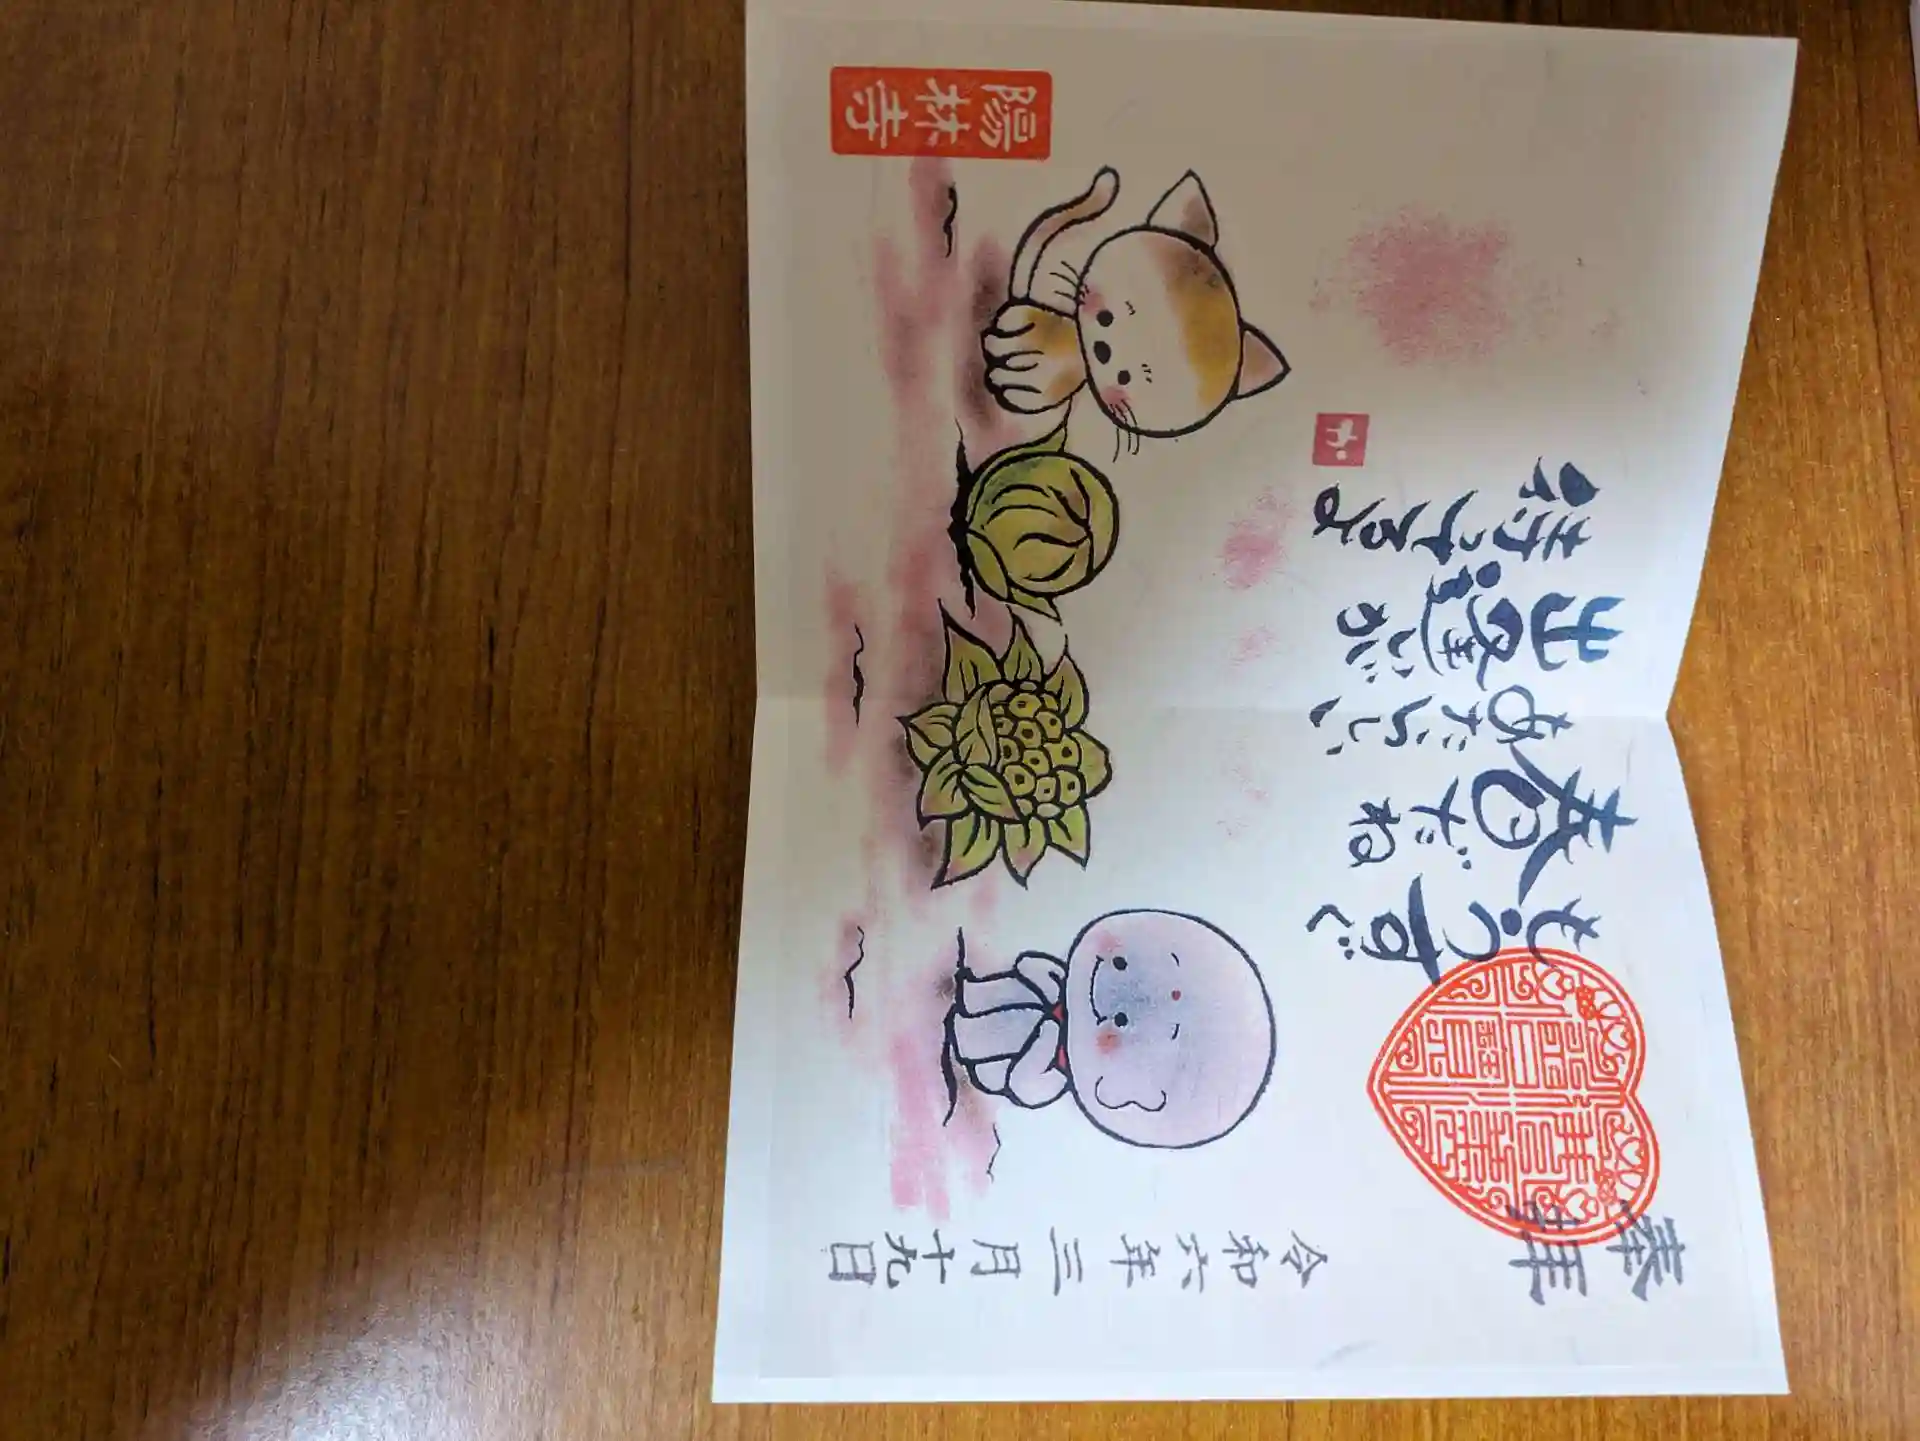 奉拝
令和六年三月十九日
もうすぐ
春だね
あたらしい
出逢いが
待ってるよ
陽林寺